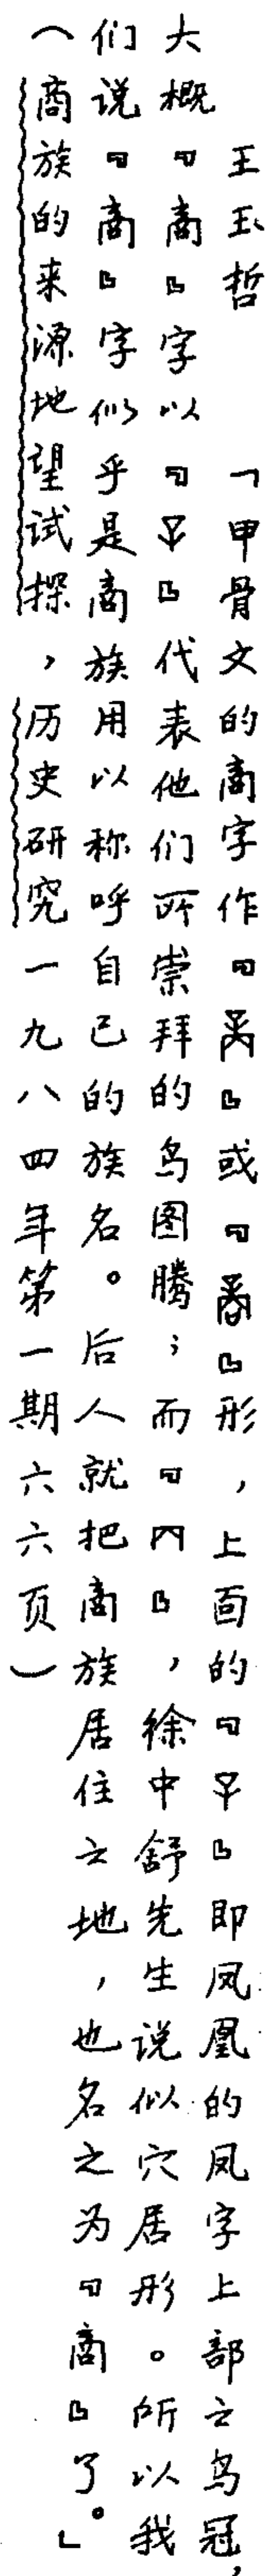 王玉哲 「甲骨文的商字作『』或『』形，上面的『』即凤凰的凤字上部之鸟冠，
大概『商』字以『』代表他们所崇拜的鸟图腾；而『内』，徐中舒先生说似穴居形。所以我
们说『商』字似乎是商族用以称呼自己的族名。后人就把商族居住之地，也名之为『商』了。」
（商族的来源地望试探，历史研究一九八四年第一期六六页）